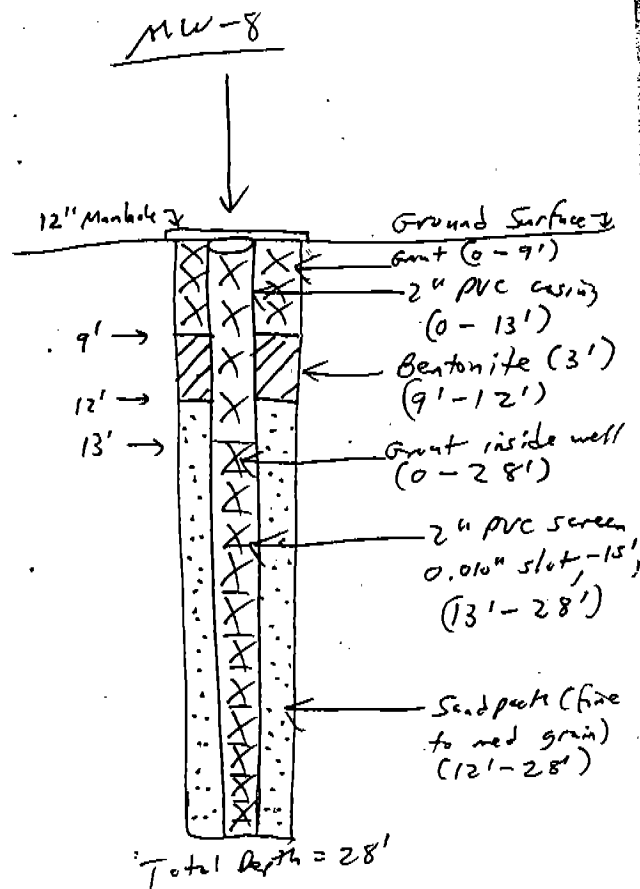 MW-8
12" Manhole
Ground Surface
Grout (0-9')
2" PVC casing
(0-13')
9'
Bentonite (3')
(9'-12')
12'
13'
Grout inside well
(0-28')
2" PVC screen
0.010" slot-15',
(13'-28')
Sandpack (fine
to med grain)
(12'-28')
Total Depth = 28'